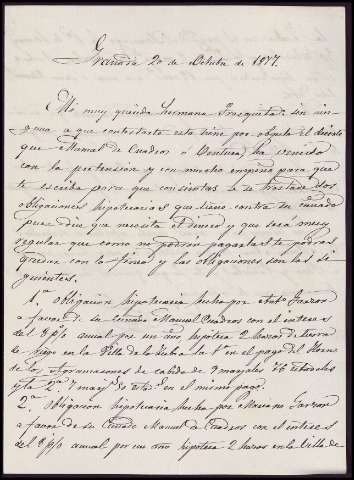 Granada 20 de Octubre de 1877.
Mi muy querida hermana Frasquita: sin nin-
guna a que contestarte esta tiene por objeto el decirte
que Manuel de Cuadros ó Ventura, ha venido
con la pretension y con mucho empeño para que
te escriba para que consientas se te traslade dos
obligaciones hipotecarias que tiene contra su cuñado
pues dice que necesita el dinero y que será muy
regular que como no podrán pagarlas te podras
quedar con la finca y las obligaciones son las si
guientes.
1.ª obligacion hipotecaria hecha por Antº Garzon
a favor de su cuñado Manuel Cuadros con el interes
del 8 p/o anual por un año hipoteca 2 hazas de tierra
de riego en la Villa de la la 1ª en el pago del Horno
de los de cabida de 9 marjales 76 estadales
y la 2ª 7 marjs 50 estds en el mismo pago.
2.ª Obligacion hipotecaria hecha por Mariano Garzon
a favor de su Cuñado Manuel de Cuadros con el interes
del 8 p/o anual por un año hipoteca 2 hazas en la Villa de